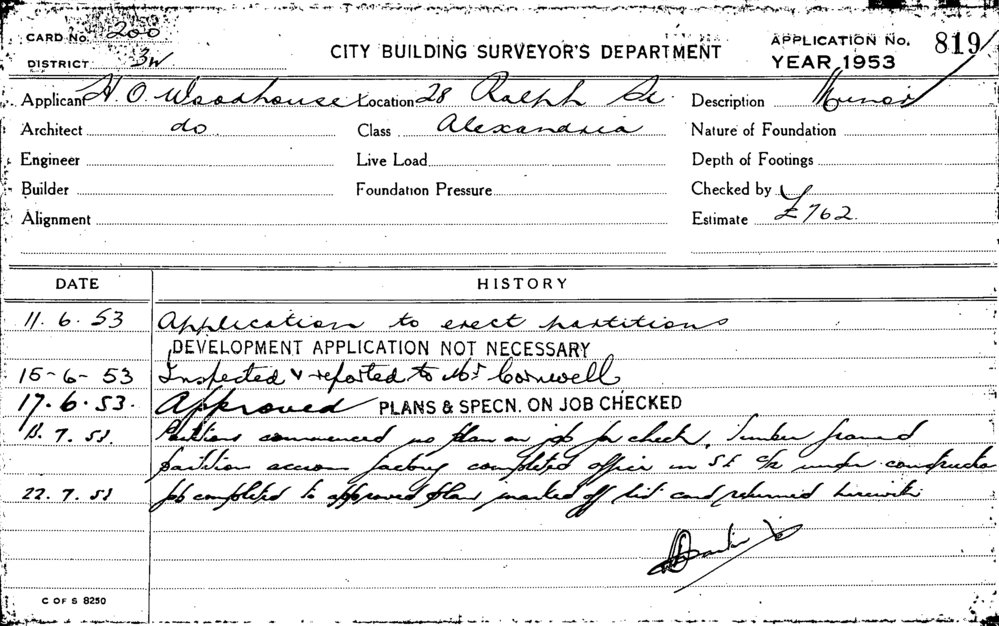 CARD No. 200
DISTRICT 3W
CITY BUILDING SURVEYOR'S DEPARTMENT
APPLICATION No. 819
YEAR 1953
Applicant H. O. Woodhouse Location 28 Ralph St. Description Minor
Architect do. Class Alexandria Nature of Foundation
Engineer Live Load Depth of Footings
Builder Foundation Pressure Checked by
Alignment Estimate £762.
DATE HISTORY
11. 6. 53 Application to erect partitions
DEVELOPMENT APPLICATION NOT NECESSARY
15-6-53 Inspected & reported to Mr Cornwell
17.6.53. Approved PLANS & SPECN. ON JOB CHECKED
7. 53. Partitions commenced no plan on job for check. Timber framed
partition across factory completed office in under construction
22. 7. 53 Job completed to approved plan marked off list card returned herewith
C OF S 8250